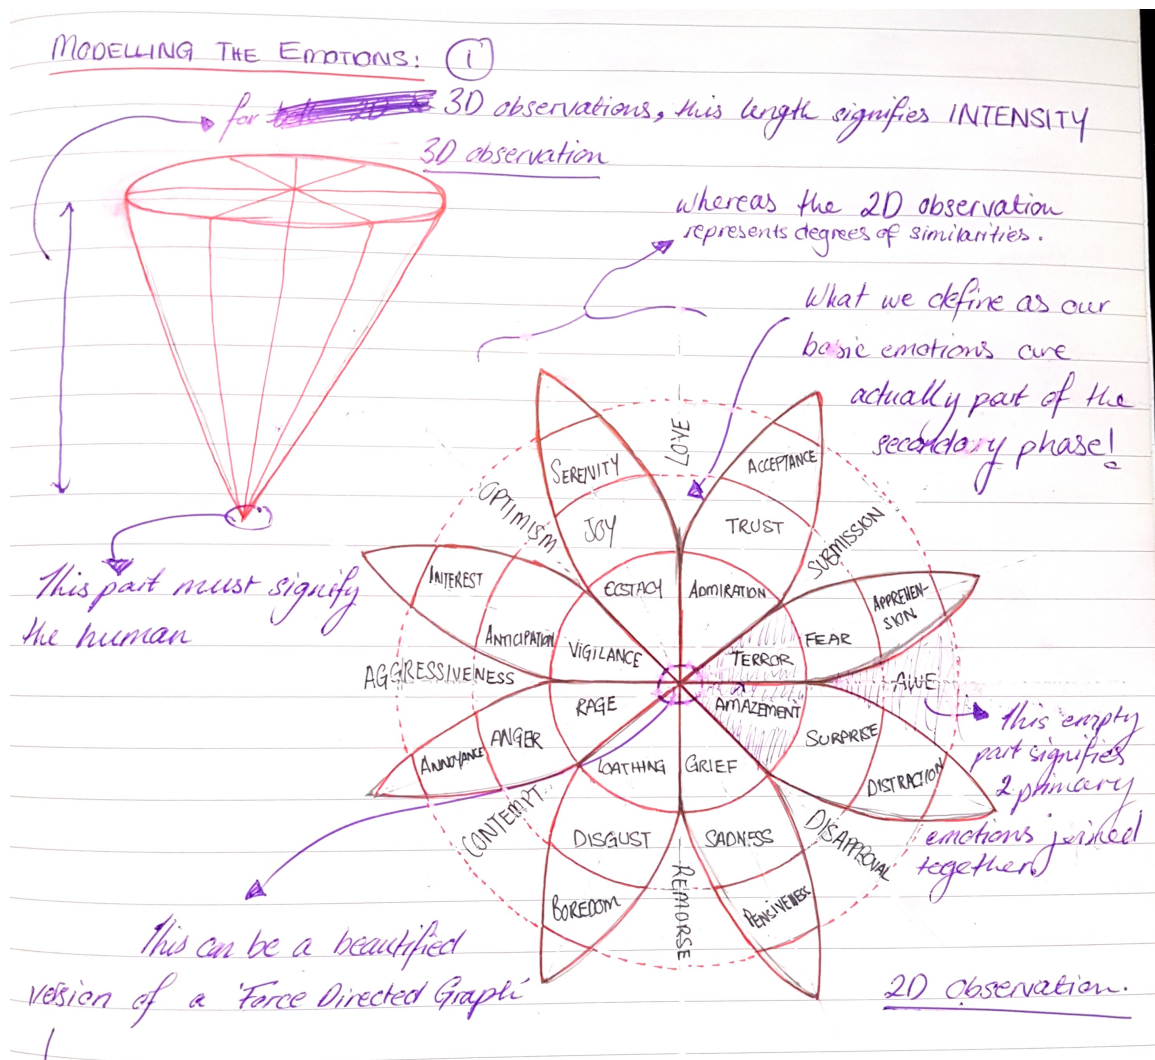 MODELLING THE EMOTIONS: 1
for 3D observations, this length signifies INTENSITY
3D observation
whereas the 2D observation
represents degrees of similarities.
What we define as our
basic emotions are
actually part of the
secondary phase!
This part must signify
the human
LOVE
SERENITY
ACCEPTANCE
OPTIMISM
JOY
TRUST
SUBMISSION
INTEREST
ECSTACY
ADMIRATION
APPREHEN-
SION
ANTICIPATION
VIGILANCE
TERROR
FEAR
AGGRESSIVENESS
AWE
RAGE
AMAZEMENT
ANNOYANCE
ANGER
SURPRISE
LOATHING
GRIEF
DISTRACTION
CONTEMPT
DISGUST
SADNESS
DISAPPROVAL
BOREDOM
REMORSE
PENSIVENESS
this empty
part signifies
2 primary
emotions joined
together
This can be a beautified
version of a 'Force Directed Graph'
2D observation.